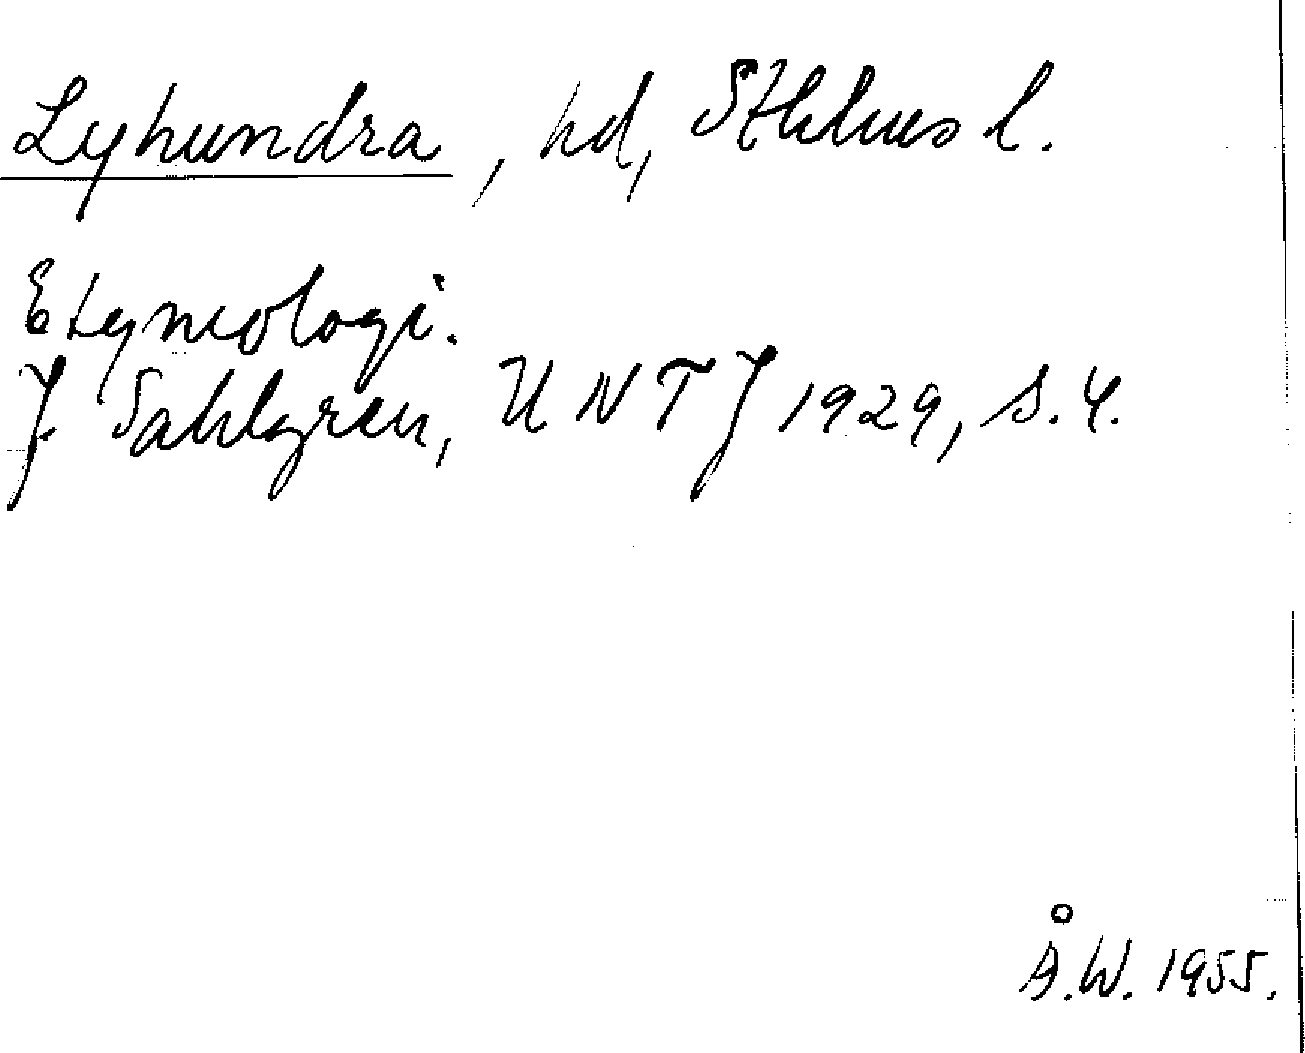 Lyhundra, hd, Sthlms l.
Etymologi.
J. Sahlgren, UNTJ 1929, s. 4.
Å.W. 1955.